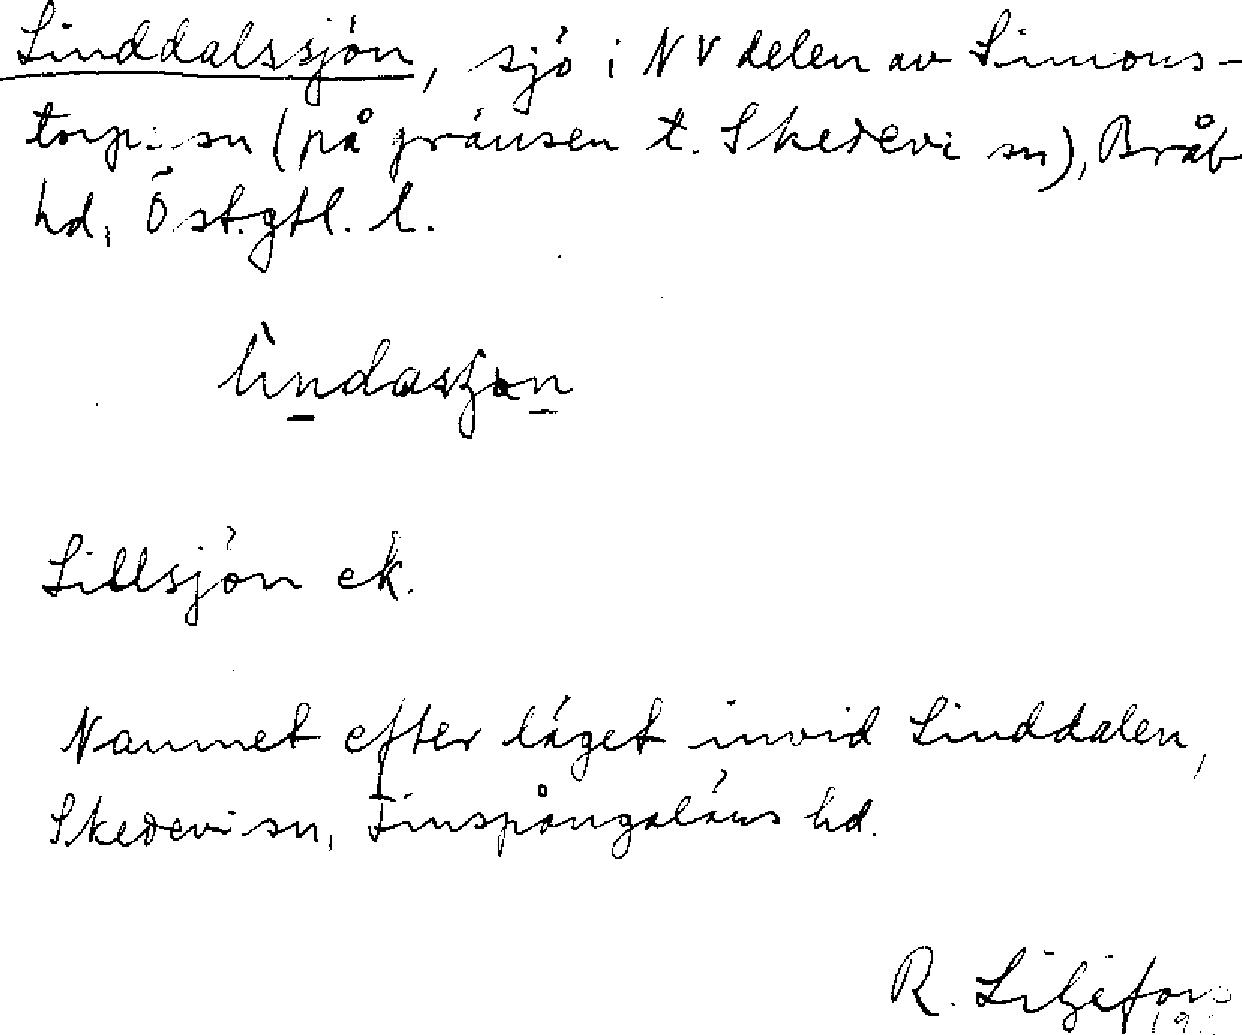 Linddalssjön, sjö i NV delen av Simons-
torps sn (på gränsen t. Skedevi sn), Bråb
hd, Östgtl. l.
Lillsjön ek.
Namnet efter läget invid Linddalen,
Skedevi sn, Finspångaläns hd.
R. Liljefors